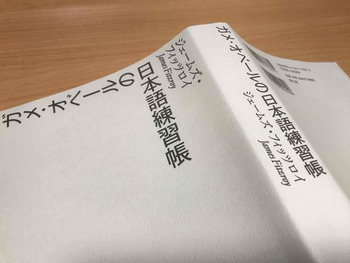 ガメ・オベールの
日本語練習帳
ジェームズ・
フィッツロイ
James Fitzroy
ガメ・オベールの日本語練習帳
ジェームズ・フィッツロイ
James Fitzroy